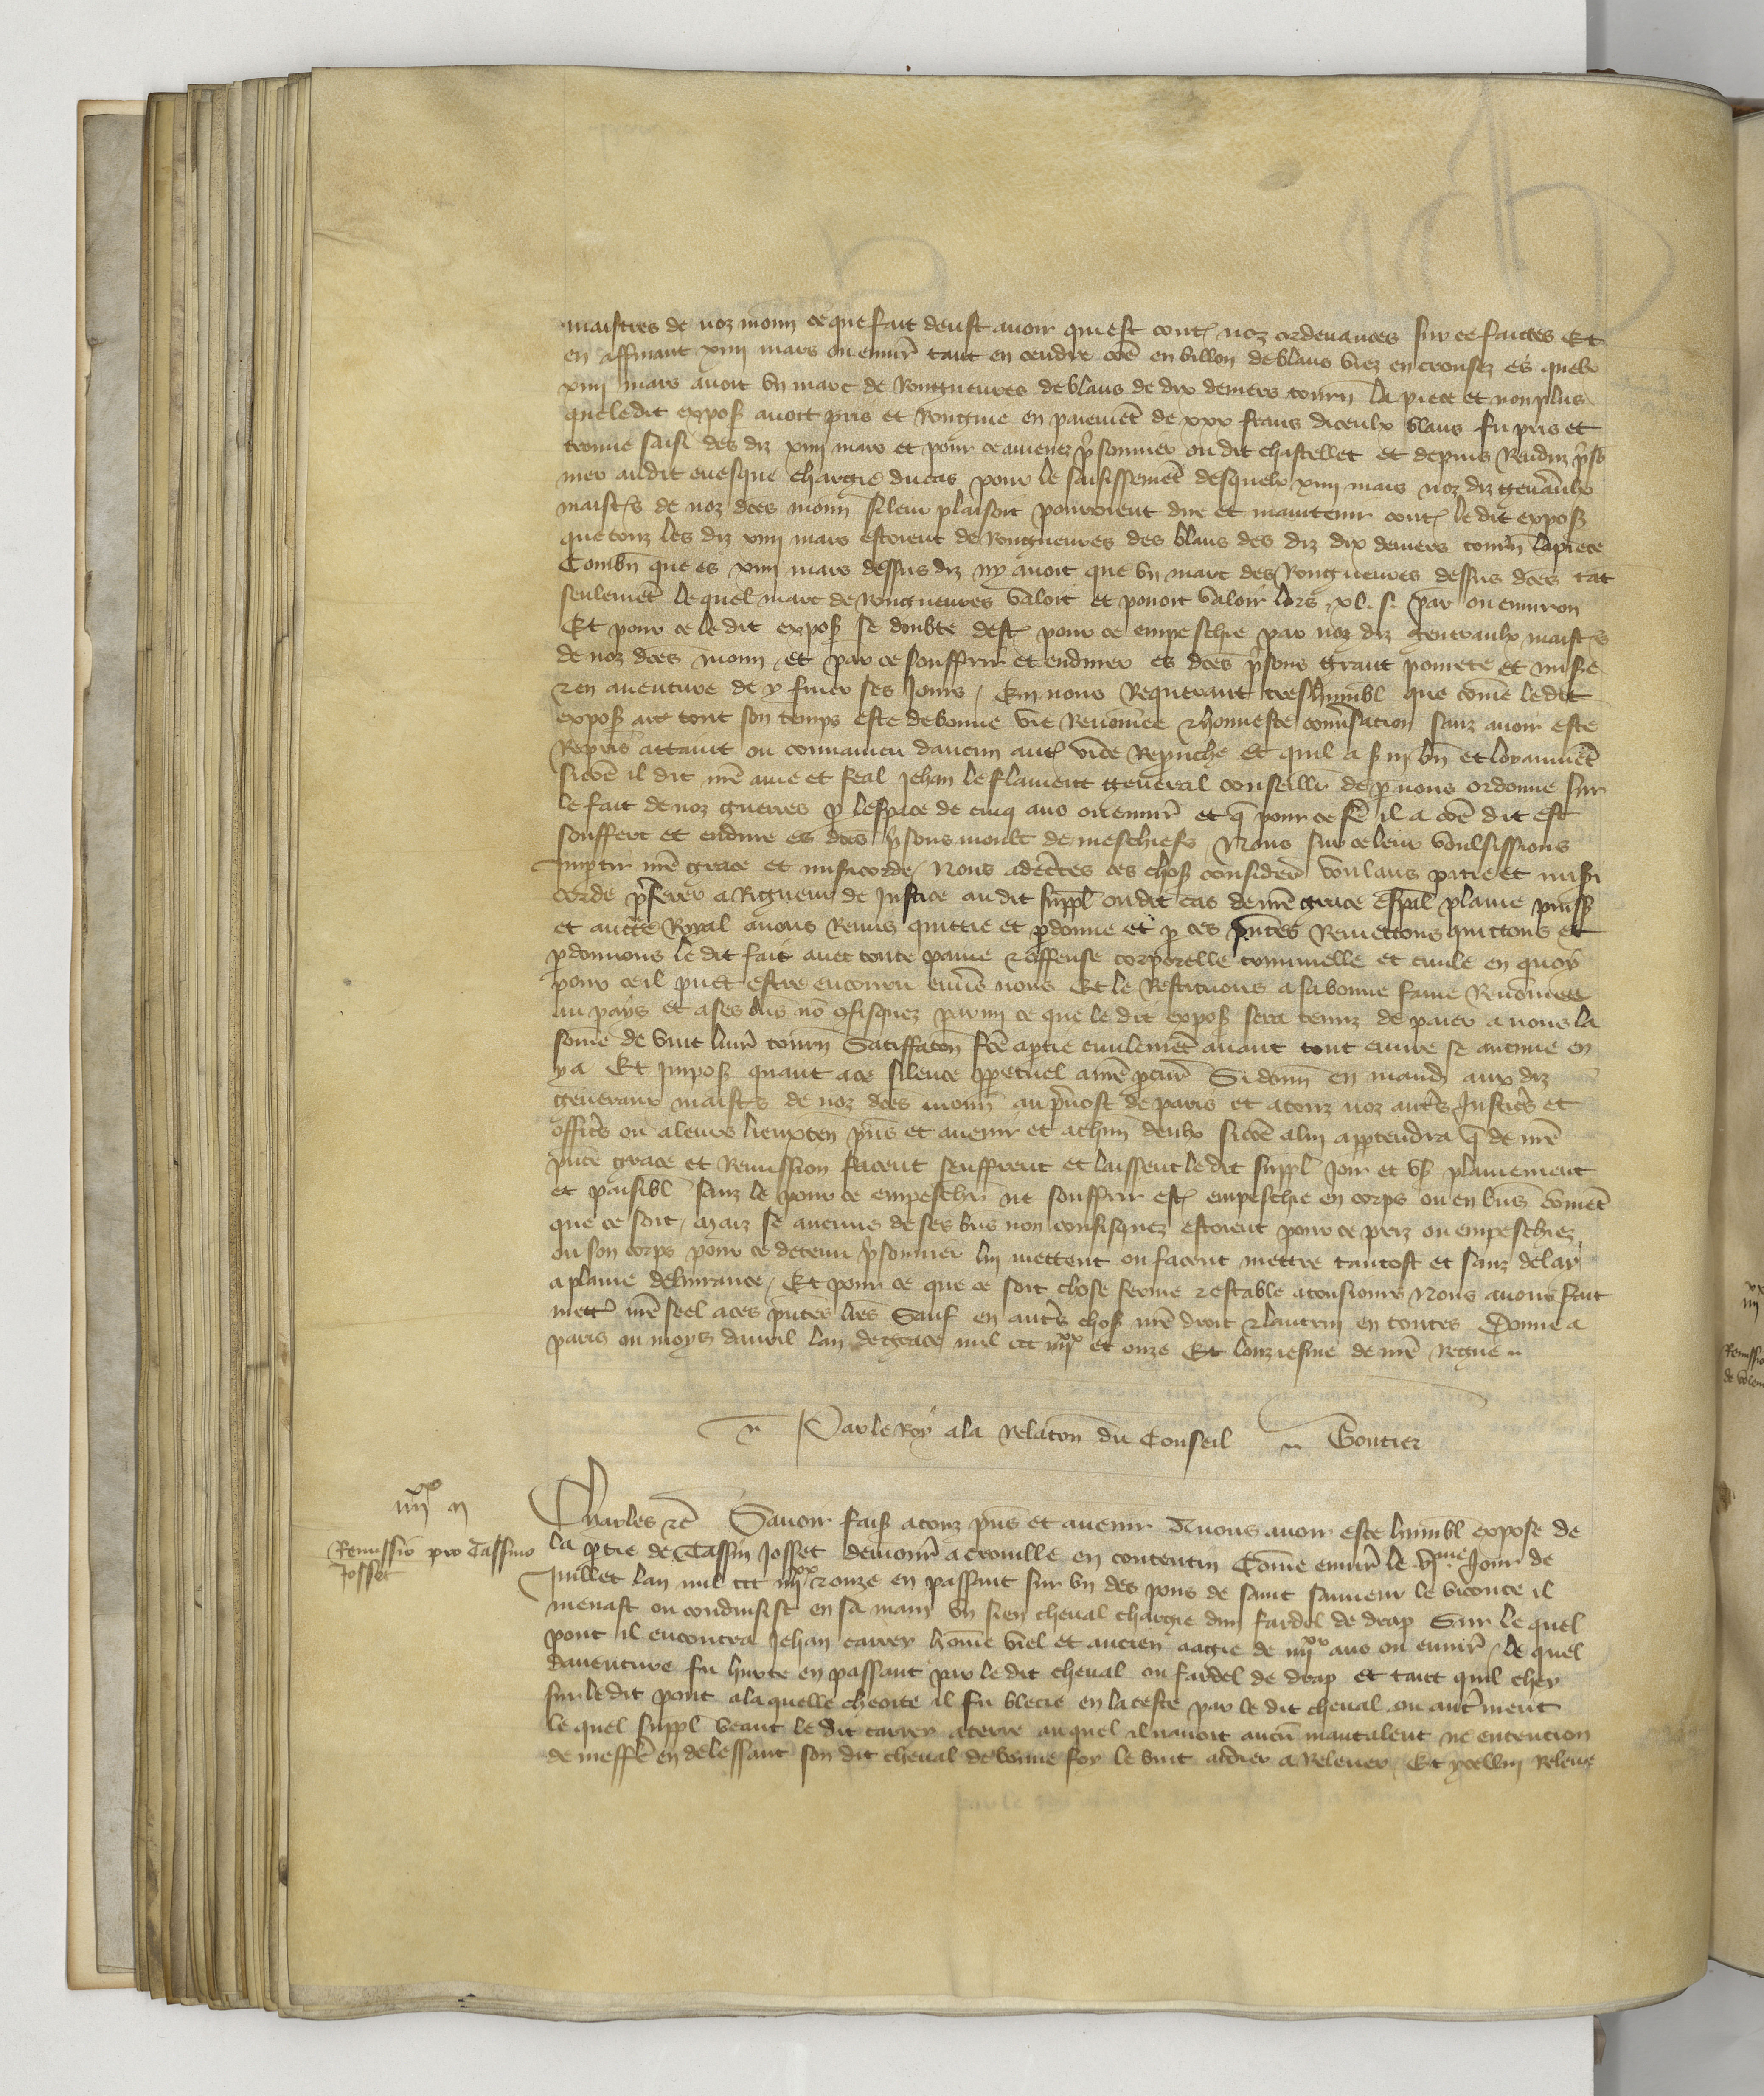 maistres de noz monn ce que fait deust avoir qui est cont noz ordenances sur ce faictes Et
en affinant xiiii mars ou envir tant en cendre coe en billon de blans viez en crousez es quelx
xiiii mars avoit un marc de Rongneures de blans de dix deniers tourn la piece et non plus
que le dit expos avoit pris et Rongnie en paiemet de xxx frans diceulx blans fu pris et
trouve saisi des diz xiiii mars et pour ce amenez prisonnier ou dit chastellet et depuis Renduz priso
nier audit evesque chargie du cas pour le saisissemet desquelx xiiii mars noz diz generaulx
maists de noz dces monn se leur plaisoit pourroient dire et maintenir cont le dit expos
que touz les diz xiiii mars estoient de Rongneures des blans des diz dix deniers tourn la piece
Combn que es xiiii mars dessus diz ny avoit que un marc des Rongneures dessus dces tat
seulemet le quel marc de Rongneures valoit et povoit valoir lors xl. s. par ou environ
Et pour ce le dit expos se doubte dest pour ce empeschie par noz diz generaulx maists
de noz dces monn et par ce souffrir et endurer es dces prisons grant povrete et mise
et en aventure de y finer ses Jours / En nous Requerant treshumbl que come le dit
expos ait tout son temps este de bonne vie Renomee et honneste conversacion sanz avoir este
Repris attaint ou convaincu daucun aut villain Reprouche Et quil a servi bn et loyaumet
sicoe il dit nre ame et feal Jehan le flament general conseillr de p nous ordonne sur
le fait de noz guerres p lespace de cinq ans ou envir et q pour ce fe il a coe dit est
souffert et endure es dces prisons moult de meschiefs / Nous sur ce leur voulsissions
Impartir nre grace et misicorde / Nous adctes ces chos consider voulans pitie et misi
corde preferer a Rigueur de Justice au dit suppl ou dit cas de nre grace espal plaine puiss
et aucte Royal avons Remis quittie et pdonne et p ces pntes Remettons quittons et
pdonnons le dit fait avec toute paine et offense corporelle criminelle et civile en quoy
pour ce il puet estre encouru envs nous Et le Restituons a sa bonne fame Renomee
au pays et a ses bns no cfisquez parmi ce que le dit expos sera tenuz de paier a nous la
some de vint livr tourn Satiffacon fce aptie civilemet avant tout euvre se aucune en
y a Et Impos quant a ce silence ppetuel a nre pcur Si donn en mand aux diz
generaux maists de noz dces monn au prevost de paris et a touz noz autrs Justicrs et
officrs ou a leurs lieuxten pns et avenir et a chun deulx sicoe a lui apptendra q de nre
pnte grace et Remission facent seuffrent et laissent le dit suppl Joir et us plainement
et paisibl sanz le pour ce empeschr ne souffrir est empeschie en corps ou en bns comet
que ce soit / Maiz se aucuns de ses bns non confisquez estoient pour ce priz ou empeschiez
ou son corps pour ce detenu prisonnier lui mettent ou facent mettre tantost et sanz delay
a plaine delivrance / Et pour ce que ce soit chose ferme et estable a tousiours Nous avons fait
mettr nre seel a ces pntes lres Sauf en autrs chos nre droit et lautruy en toutes Donne a
paris ou moys davril lan de grace mil ccc iiiixx et onze Et lonziesme de nre regne
Par le Roy a la relacon du Conseil Gontier
iiiixx ii
Remissio pro Tassino
Josset
Charles etc Savoir faiss a touz pns et avenir A nous avoir este humbl expose de
la ptie de Tassin Josset demour a croville en contentin Come envir le vime Jour de
Juillet lan mil ccc iiiixx et onze en passant sur un des pons de saint sauveur le viconte il
menast ou conduisist en sa main un sien cheval chargie dun fardel de drap Sur le quel
pont il encontra Jehan carrey home viel et ancien aagie de iiiixx ans ou envir / le quel
daventure fu hurte en passant par le dit cheval ou fardel de drap et tant quil chey
sur le dit pont a la quelle cheoite il fu blecie en la teste par le dit cheval ou autrment
le quel suppl veant le dit carrey a terre au quel il navoit aucu mautalent ne entencion
de meffe en delessant son dit cheval de bonne foy le vint aidier a Relever / Et ycellui Releve